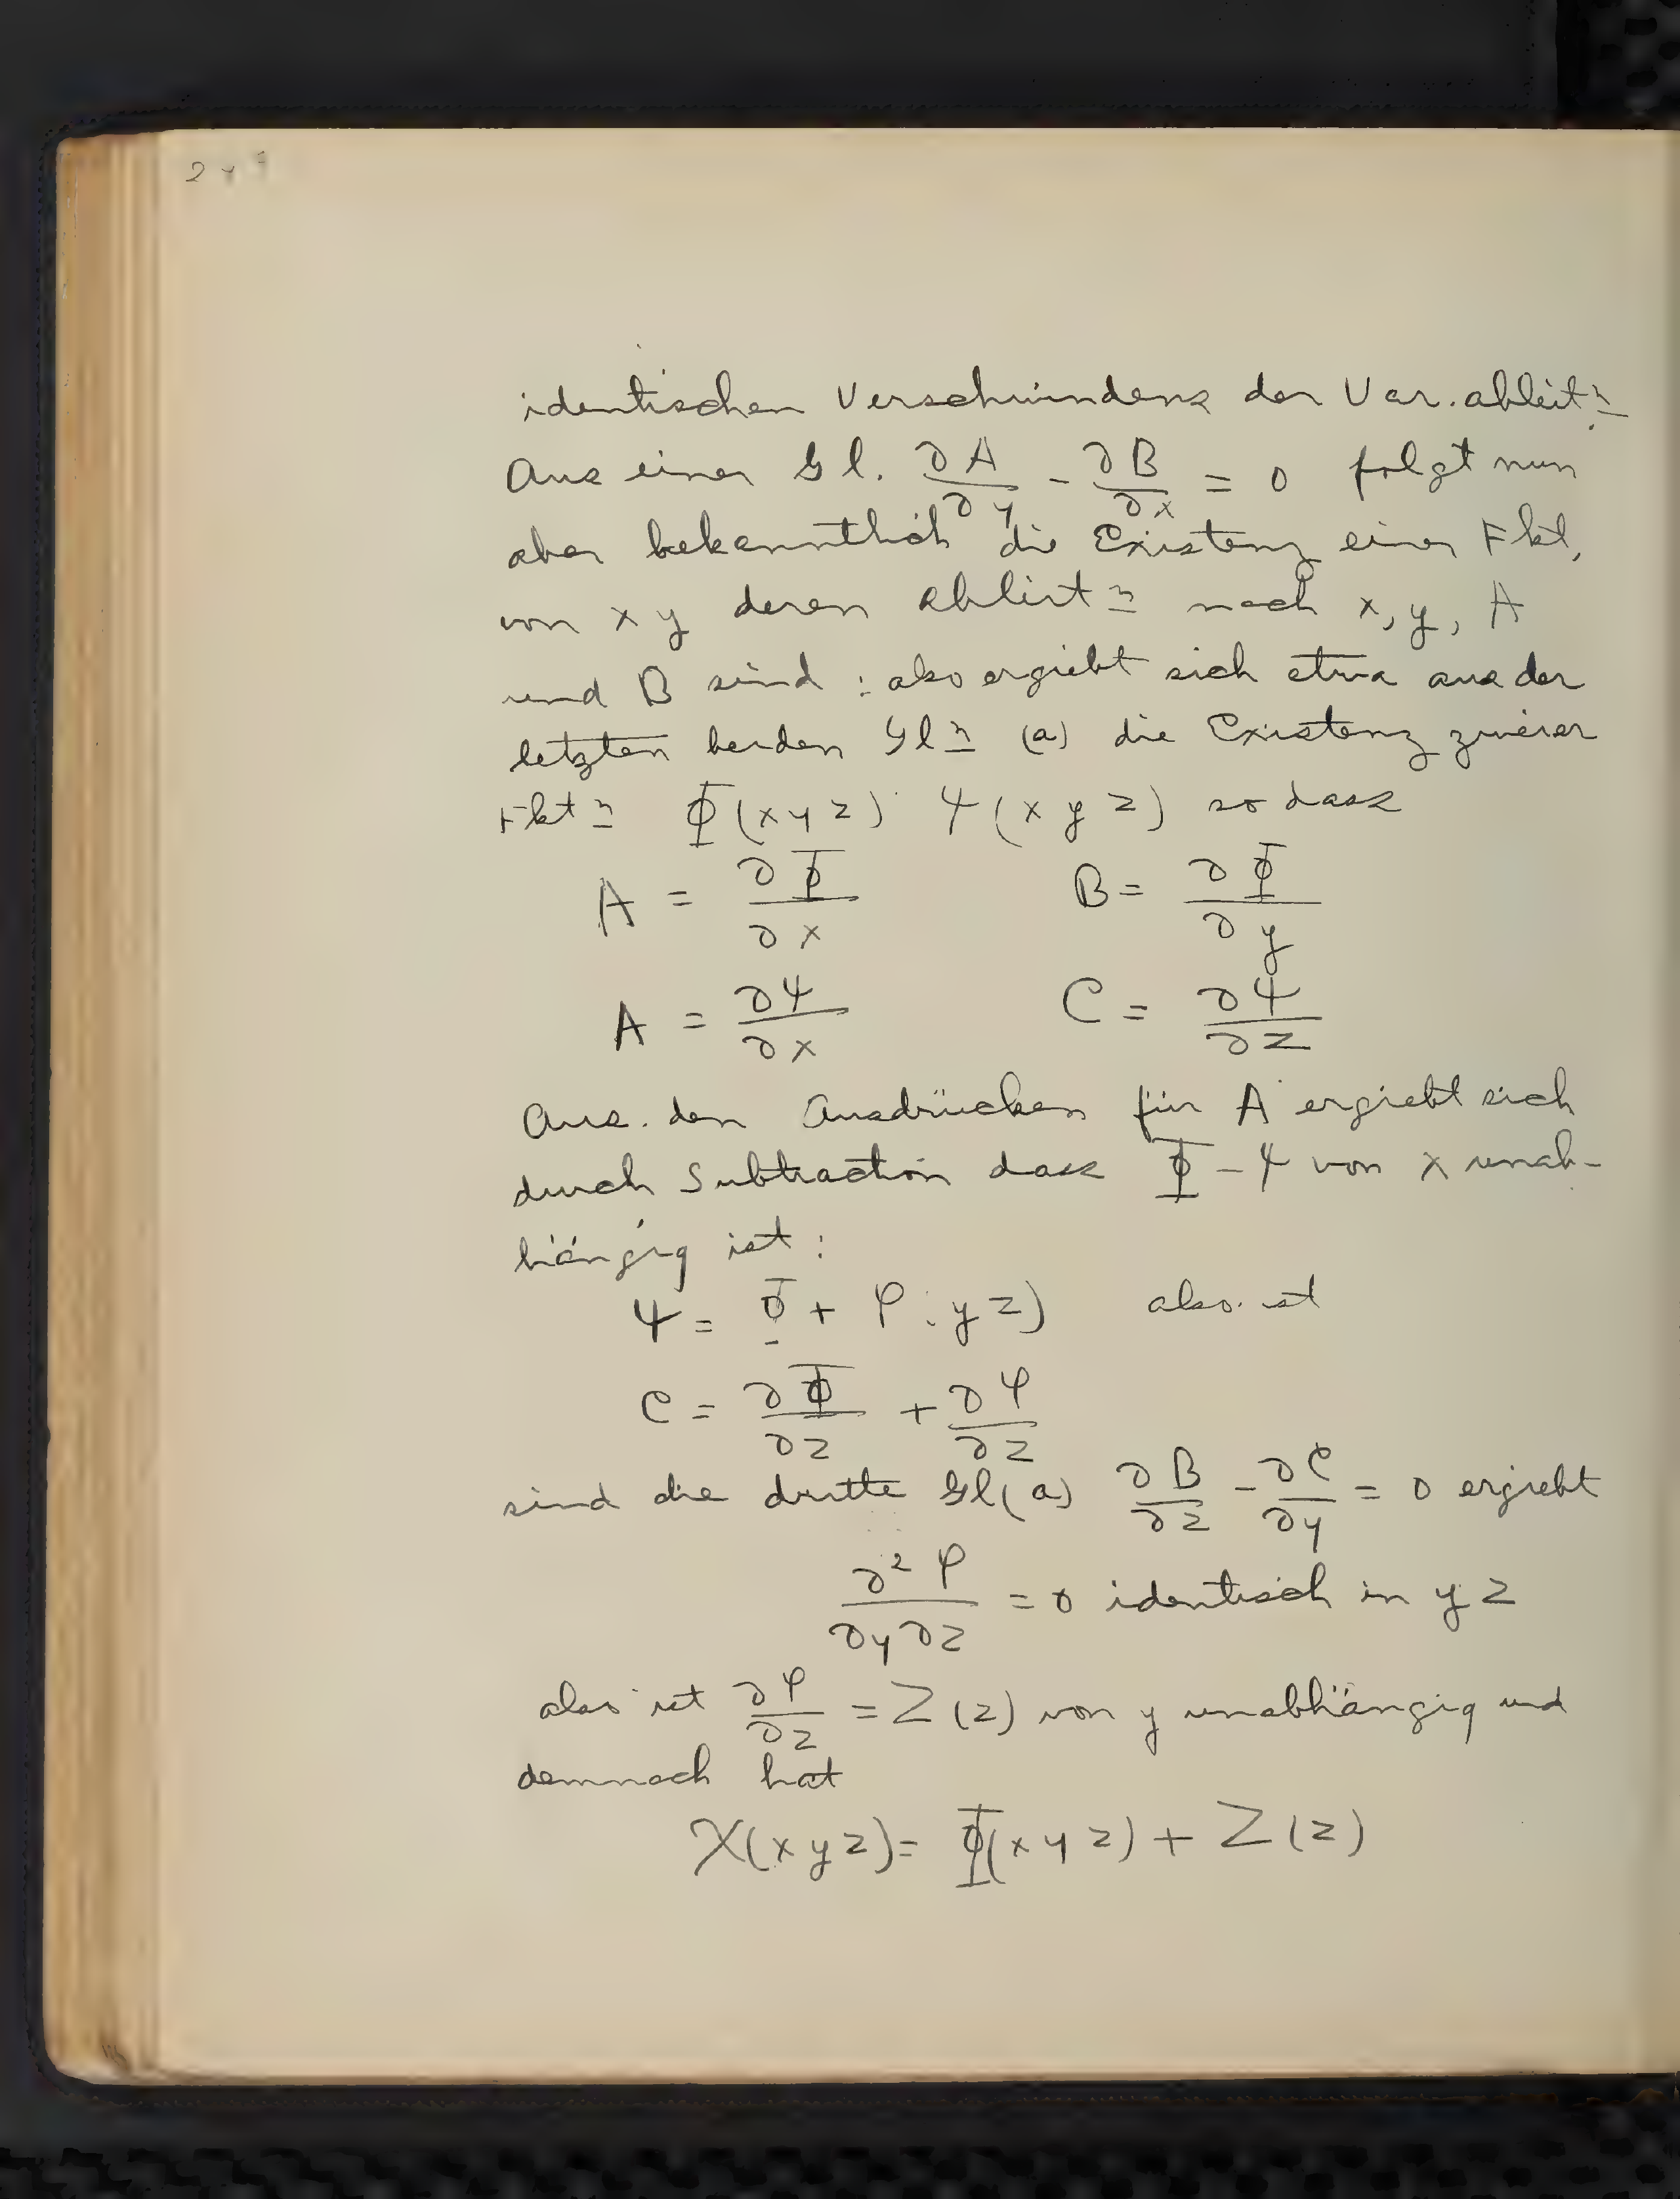 identischen Verschwindens der Var. ableit<u>n</u>
Aus einer Gl. ∂A/∂y - ∂B/∂x = 0 folgt nun
aber bekanntlich die Existenz einer Fkt.
von x y deren Ableit<u>n</u> nach x, y, A
und B sind : also ergiebt sich etwa aus der
letzten beiden Gl<u>n</u> (a) die Existenz zweier
Fkt<u>n</u> Φ(xyz) Ψ(xyz) so dass
A = ∂Φ/∂x B = ∂Φ/∂y
A = ∂Ψ/∂x C = ∂Ψ/∂z
Aus den Ausdrücken für A ergiebt sich
durch Subtraction dass Φ - Ψ von x unab-
hängig ist :
Ψ = Φ + φ(yz) also ist
C = ∂Φ/∂z + ∂φ/∂z
sind die dritte Gl(a) ∂B/∂z - ∂C/∂y = 0 ergiebt
∂²φ/∂y∂z = 0 identisch in y z
also ist ∂φ/∂z = Z(z) von y unabhängig und
demnach hat
X(xyz) = Φ(xyz) + Z(z)